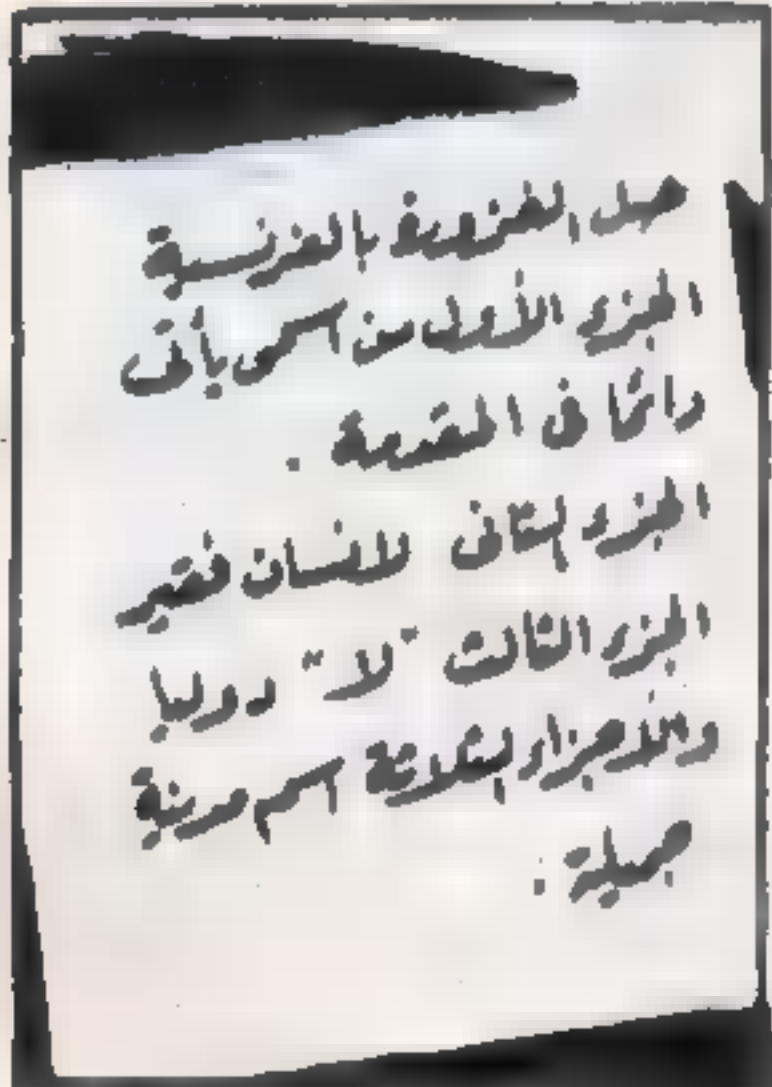 حل الفزورة بالفرنسية
الجزء الأول من اسمى يأتى
دائما فى المقدمة .
الجزء الثانى لانسان فقير
الجزء الثالث "لا" دوليا
والأجزاء الثلاثة اسم مدينة
جميلة :